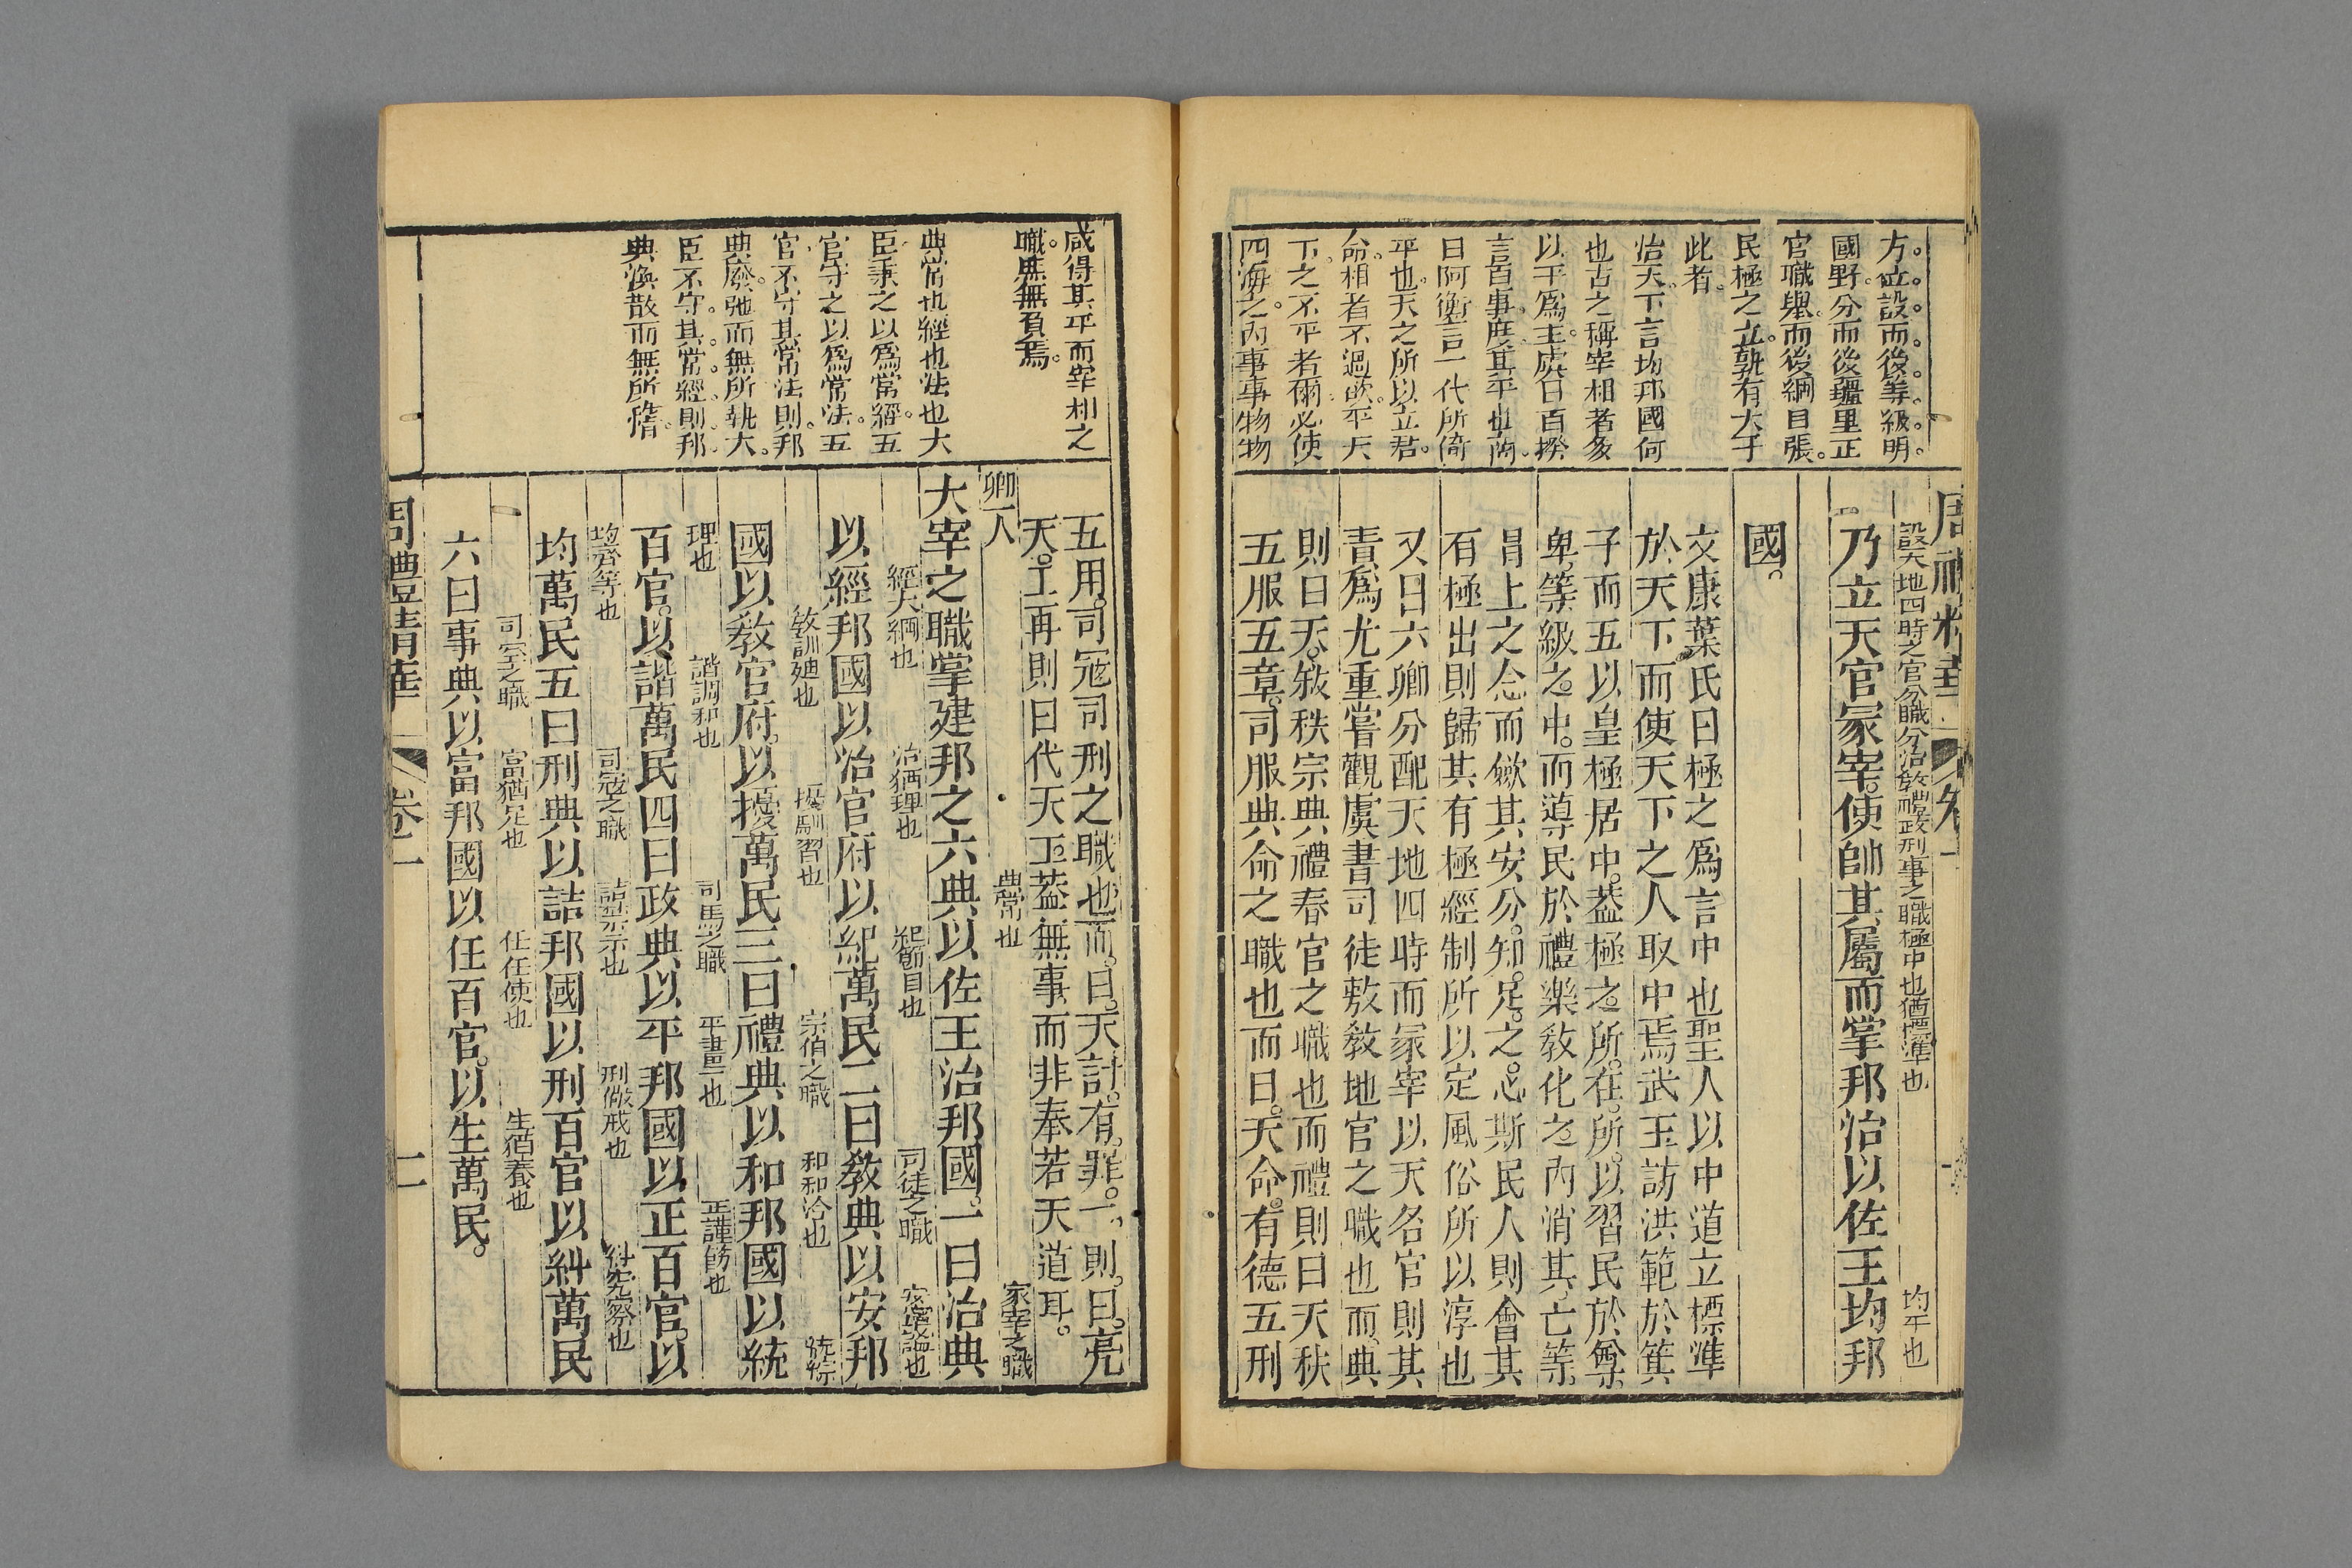 方位設而後等級明
國野分而後疆里正
官職舉而後綱目張
民極之立孰有大于
此者
治天下言均邦國何
也古之稱宰相者多
以平為主虞曰百揆
言百事度其平也商
曰阿衡言一代所倚
平也天之所以立君
命相者不過欲平天
下之不平者爾必使
四海之內事事物物
周禮精華 卷一
設天地四時之官分職分治教禮政刑事之職極中也猶標準也 均平也
乃立天官冢宰使帥其屬而掌邦治以佐王均邦
國
文康葉氏曰極之為言中也聖人以中道立標準
於天下而使天下之人取中焉武王訪洪範於箕
子而五以皇極居中葢極之所在所以習民於尊
卑等級之中而導民於禮樂教化之內消其亡等
冒上之念而斂其安分知足之心斯民人則會其
有極出則歸其有極經制所以定風俗所以淳也
又曰六卿分配天地四時而冢宰以天名官則其
責為尤重嘗觀虞書司徒敷教地官之職也而典
則曰天敘秩宗典禮春官之職也而禮則曰天秩
五服五章司服典命之職也而曰天命有德五刑
咸得其平而宰相之
職無負焉
典常也經也法也大
臣秉之以為常經五
官守之以為常法五
官不守其常法則邦
典廢弛而無所執大
臣不守其常經則邦
典渙散而無所
五用司寇司刑之職也而曰天討有罪一則曰亮
天工再則曰代天工葢無事而非奉若天道耳
卿一人
典常也 冢宰之職
大宰之職掌建邦之六典以佐王治邦國一曰治典
經大綱也 治猶理也 紀節目也 司徒之職 安寧謐也
以經邦國以治官府以紀萬民二曰教典以安邦
教訓廸也 擾馴習也 宗伯之職 和和洽也 統綜
國以教官府以擾萬民三曰禮典以和邦國以統
理也 諧調和也 司馬之職 平畫一也 正謹飭也
百官以諧萬民四曰政典以平邦國以正百官以
均齊等也 司寇之職 詰禁示也 刑儆戒也 糾究察也
均萬民五曰刑典以詰邦國以刑百官以糾萬民
司空之職 富猶足也 任任使也 生猶養也
六曰事典以富邦國以任百官以生萬民
周禮精華 卷一 二